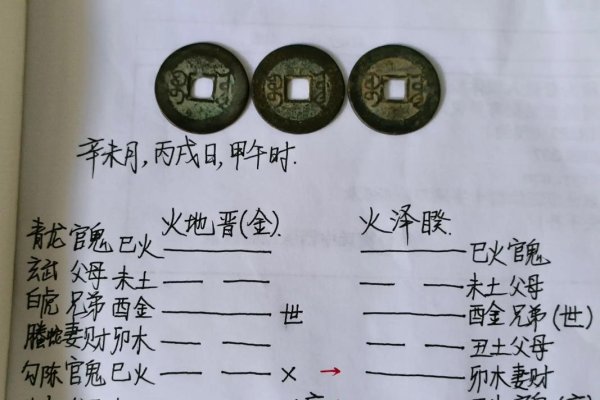 辛未月,丙戌日,甲午时.
火地晋(金). 火泽睽.
青龙 官鬼 巳火 巳火 官鬼
玄武 父母 未土 未土 父母
白虎 兄弟 酉金 世 酉金 兄弟(世)
螣蛇 妻财 卯木 丑土 父母
勾陈 官鬼 巳火 × → 卯木 妻财